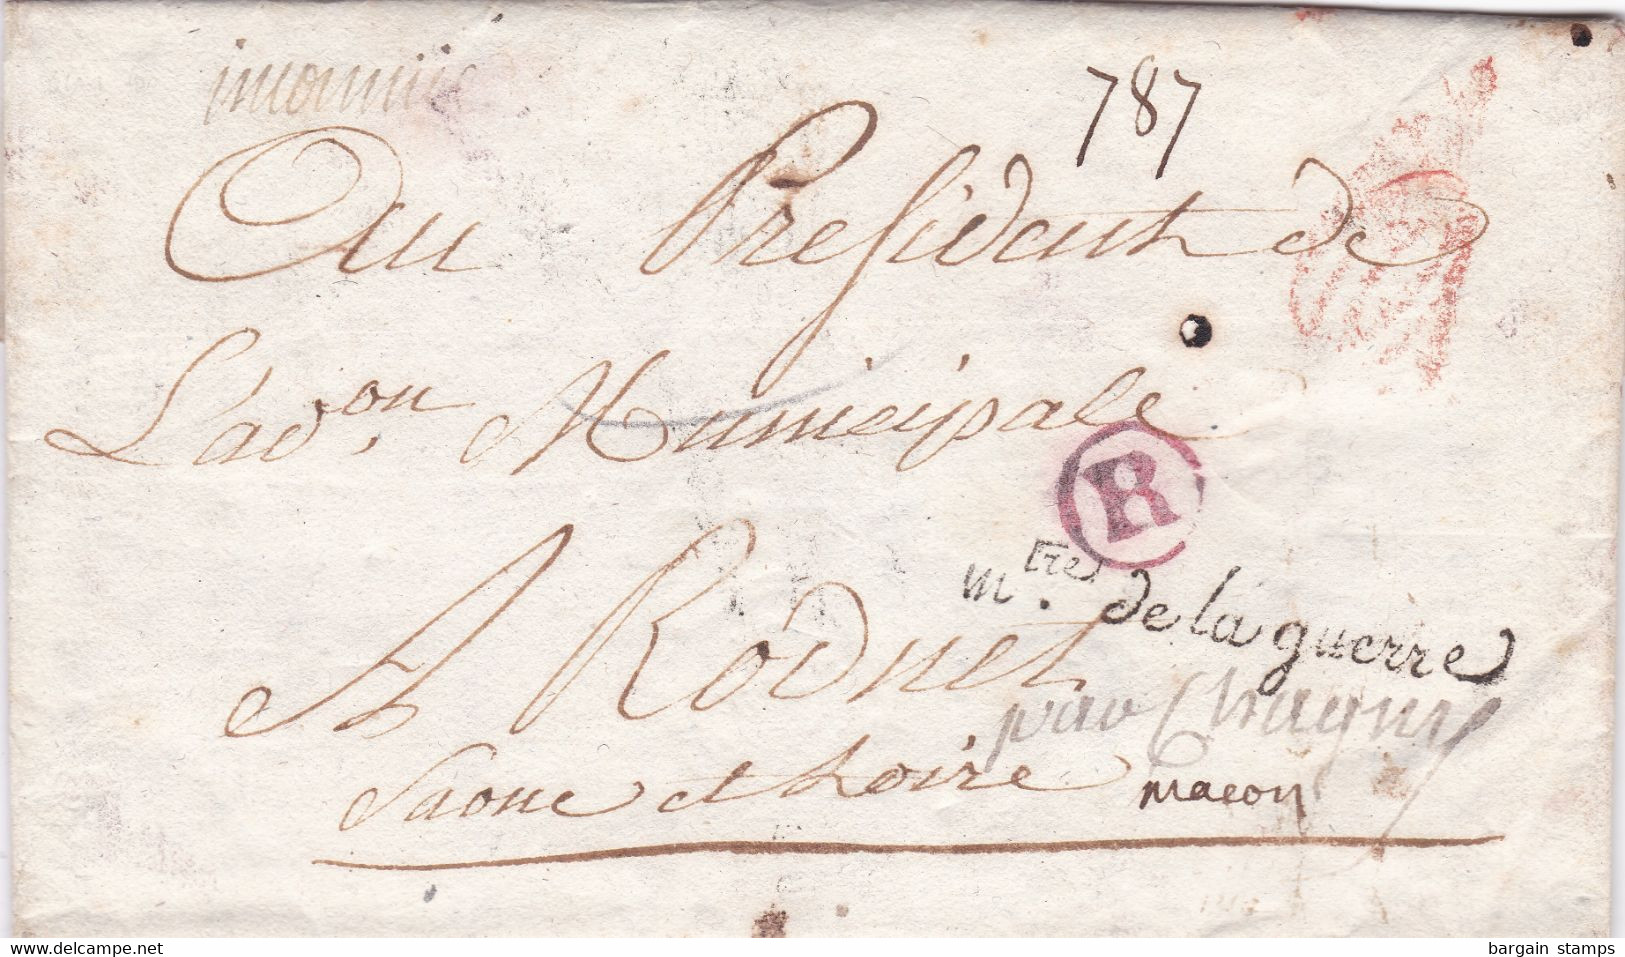 inconnu
787
Au President de
L'ad.on Municipale
R
M.tre de la guerre
A Rodnet
par Chagny
Saone et Loire
macon
delcampe.net
bargain stamps